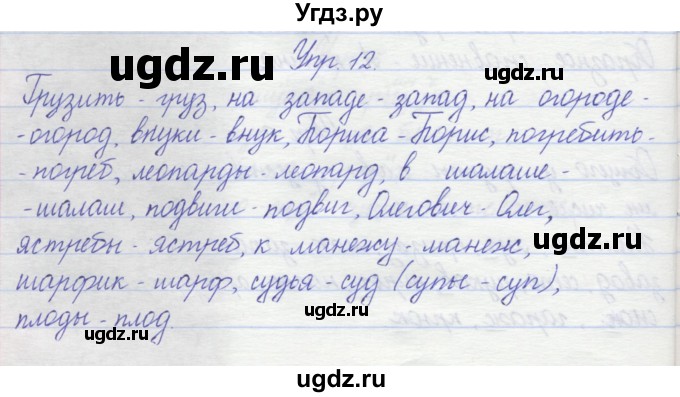 Угдз.ру
Упр. 12.
Грузить - груз, на западе - запад, на огороде -
- огород, внуки - внук, Бориса - Борис, погребить -
- погреб, леопарды - леопард, в шалаше -
- шалаш, подвиги - подвиг, Олегович - Олег,
ястребы - ястреб, к манежу - манеж,
шарфик - шарф, судья - суд (супы - суп),
плоды - плод.
ugdz.ru
ugdz.ru
ugdz.ru
ugdz.ru
ugdz.ru
ugdz.ru
ugdz.ru
ugdz.ru
ugdz.ru